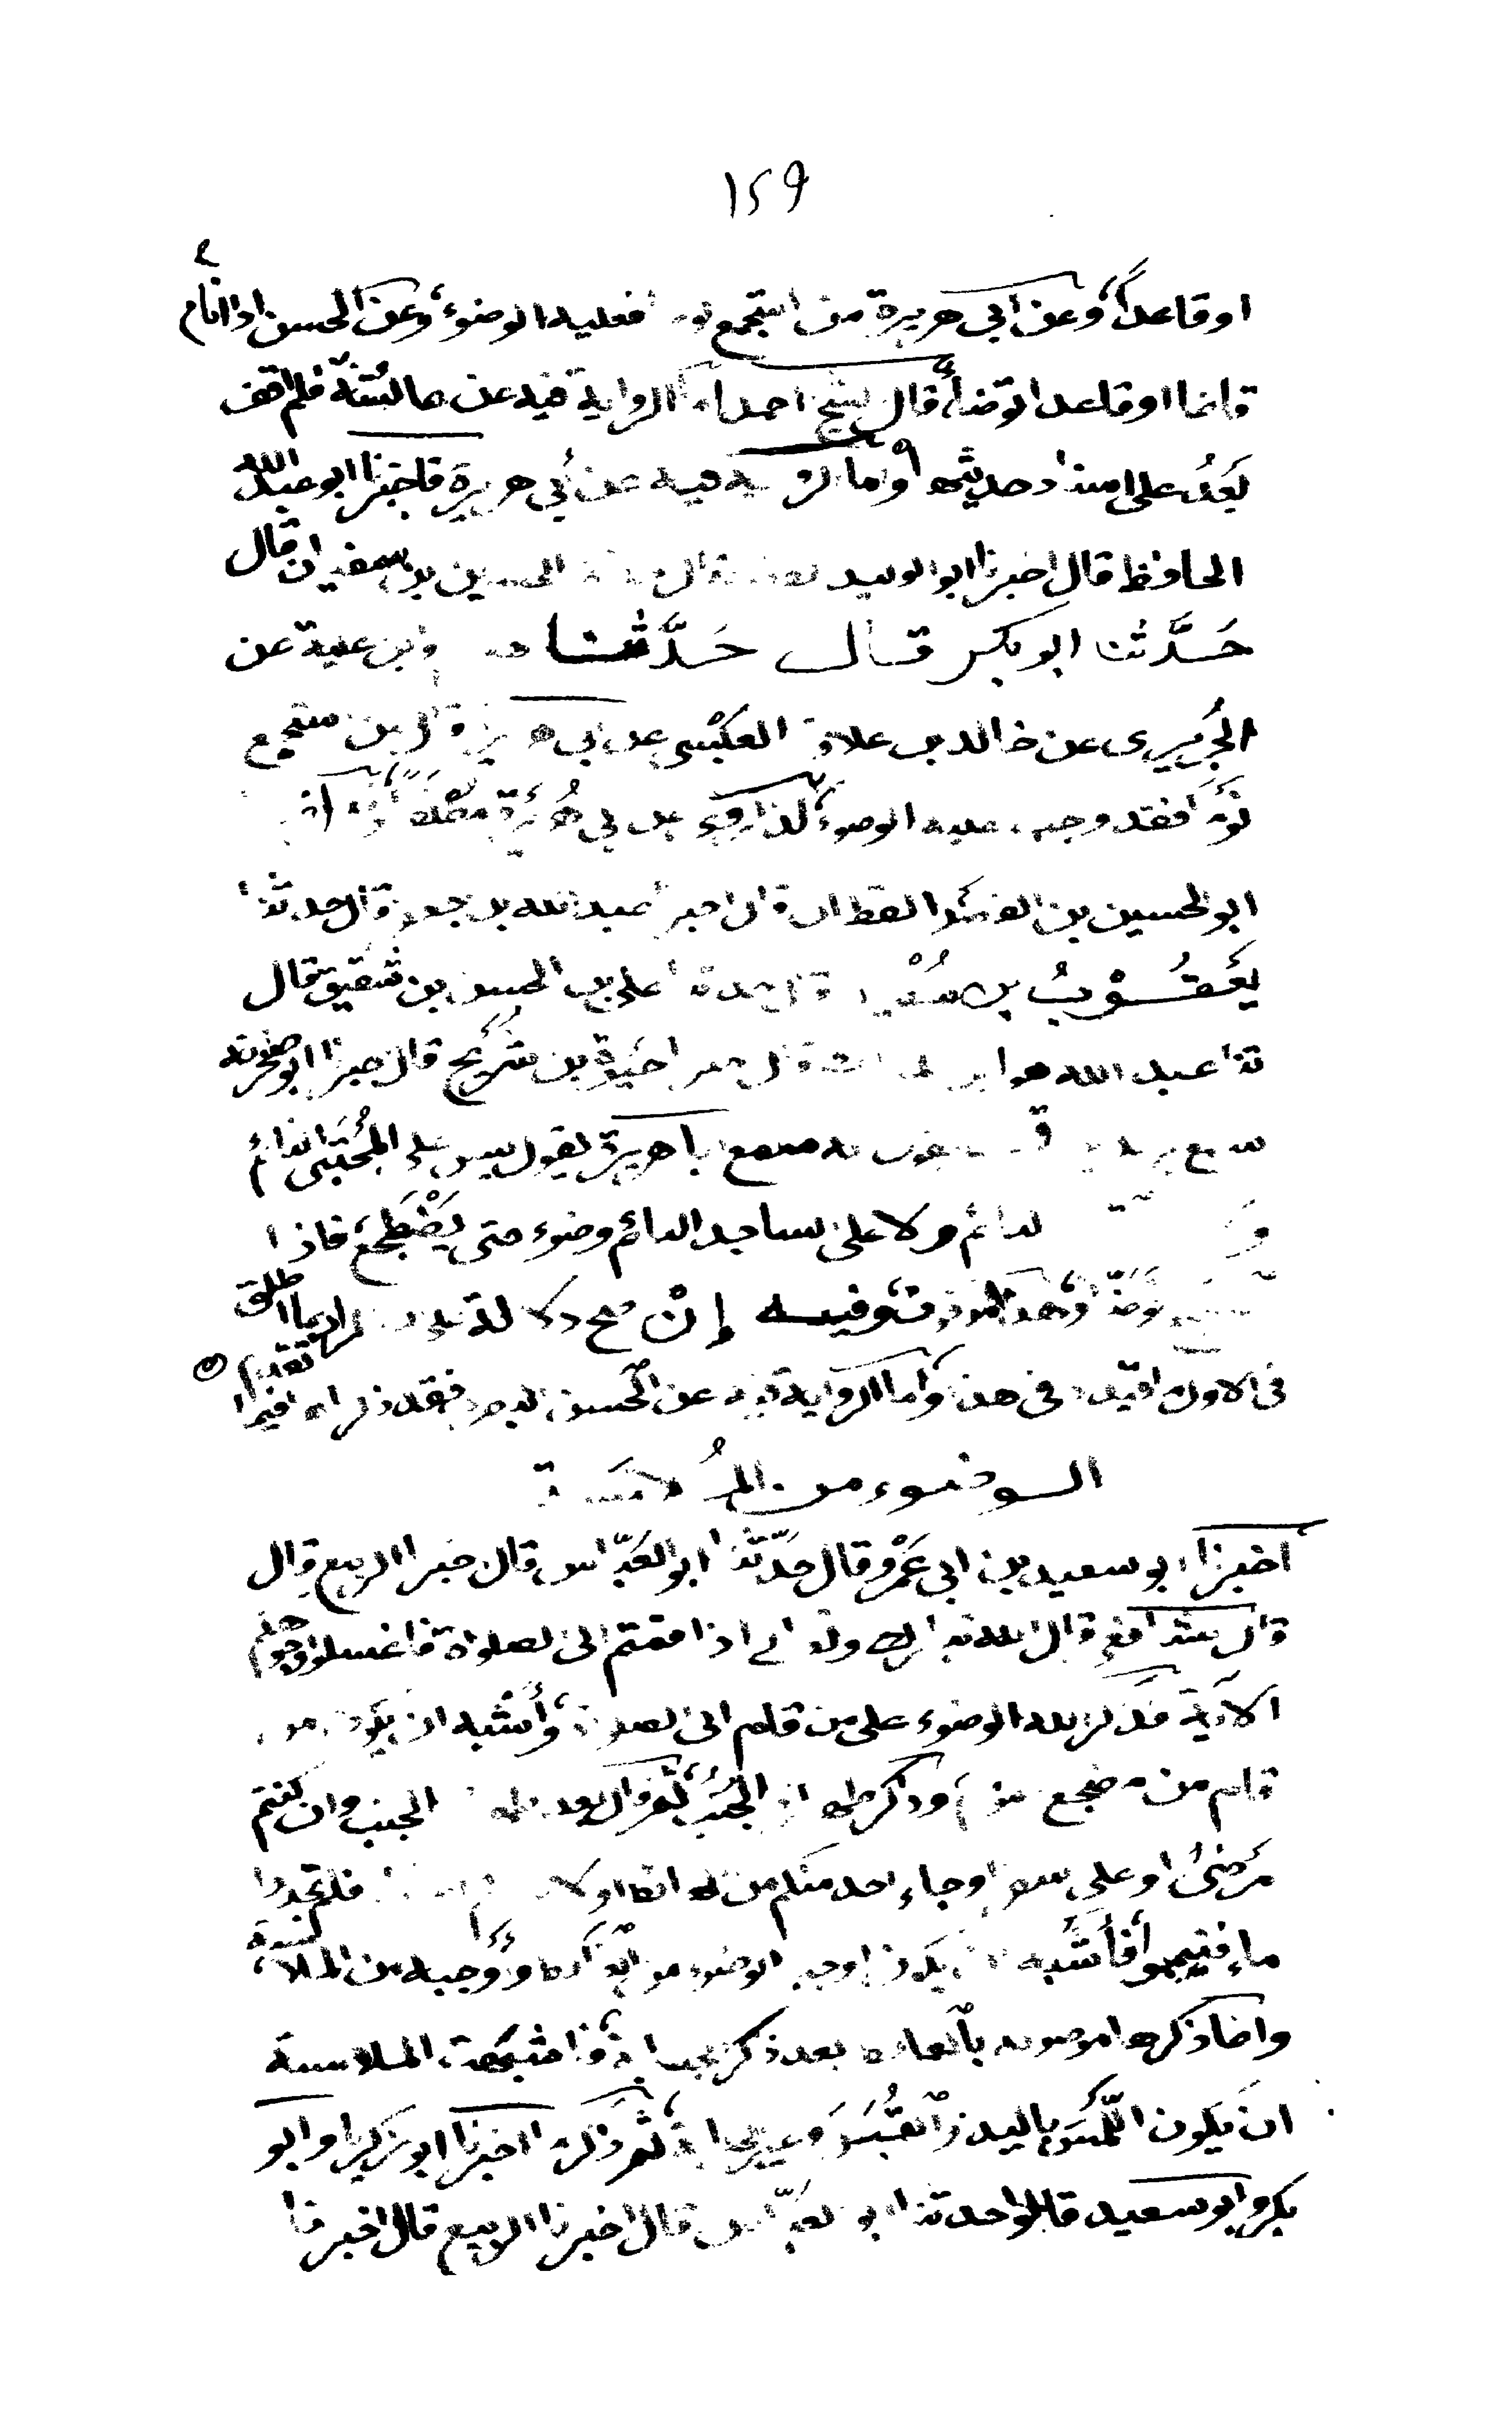 ١٥٩
او قاعدا وعن ابي هريرة من استجمع نو فعليه الوضوء وعن الحسن اذا نام
قائما او قاعدا توضأ قال الشيخ احمد اما الرواية فيه عن عائشة فلم اقف
بعد على اسناد حديثها واما الر ية فيه عن أبي هريرة فاخبرنا ابو عبد الله
الحافظ قال اخبرنا ابو الوليد الحسن بن سفيان قال
حَدَّثنا ابو بكر قال حَدَّثنا وابن علية عن
الجُريري عن خالد بن علاق العَبْسي عن ابي ه قال من استجمع
نوما فقد وجب عليه الوضوء كذا روي عن ابي هُرَيْرَة
ابو الحسين بن الفضل القطان قال اخبر عبد الله بن جعفر قال حدثنا
يَعقُوْبُ بن سُفْين قال حدثنا علي بن الحسن بن شقيق قال
ثنا عبد الله هو ابن قال اخبر حَيْوة بن شُرَيح قال اخبرنا ابو صخر انه
سمع يزيد يقول انه سمع ابا هريرة يقول ليس على المُحْتَبي النائم
و النائم ولا على الساجد النائم وضوء حتى يَضْطَجِعَ فاذا
توضأ وهذا موقوف وفيه إنْ صح دلالة على المراد بما اطلق
في الاول اقيد في هذا واما الرواية فيه عن الحسن البصر فقد ذكرناه فيما تقدم
الوضوء من المُلامَسَة
اخبرنا ابو سعيد بن ابي عَمْرو قال حَدَّثنا ابو العَبَّاس قال اخبرنا الربيع قال
قال الشافعي قال الله تبارك وتعالى اذا قمتم الى الصلوة فاغسلوا وجوهكم
الآية فذكر الله الوضوء على من قام الى الصلوة وأشبه ان يكون من
قام من مضجع النوم وذكر طهارة الجُنُب ثم قال بعد طهارة الجنب وان كنتم
مرضى او على سفر او جاء احد منكم من الغائط او لا فلم تجدوا
ماء فتيمموا فأشبه ان يكون اوجب الوضوء من الغائط واوجبه من الملامسة
وانما ذكرها موصولة بالغائط بعد ذكر الجنابة فاشبهت الملامسة
ان يكون اللَّمس باليد والقُبلة وغير الجنابة ثم ذكر ما اخبرنا ابو زكريا وابو
بكر وابو سعيد قالوا حدثنا ابو العبَّاس قال اخبرنا الربيع قال اخبرنا